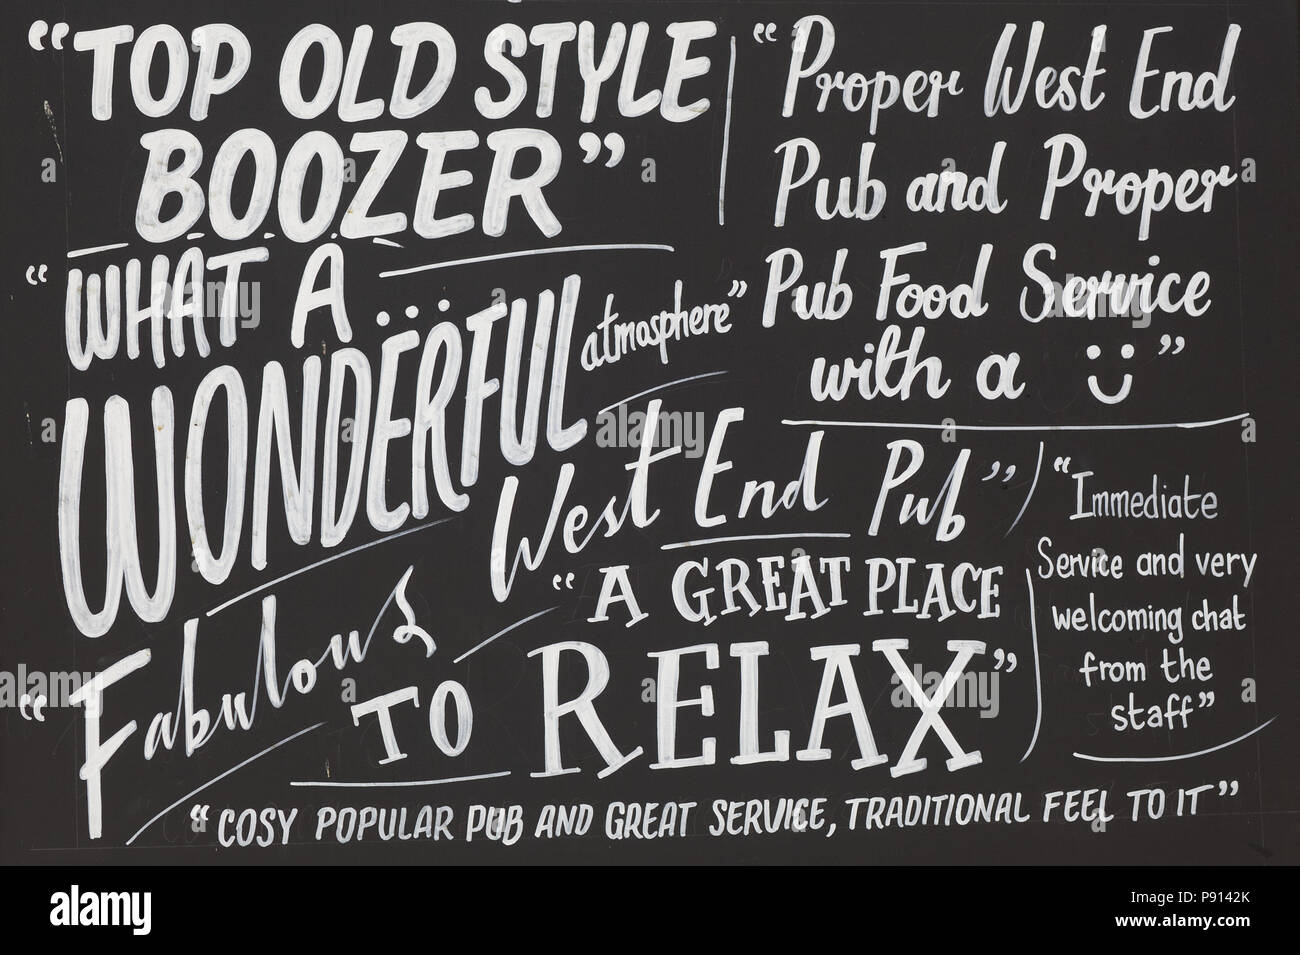 “TOP OLD STYLE
BOOZER”
“Proper West End
Pub and Proper
Pub Food Service
with a Ü”
“WHAT A
WONDERFUL
atmosphere”
“Fabulous
West End Pub”
“A GREAT PLACE
TO RELAX”
“Immediate
Service and very
welcoming chat
from the
staff”
“COSY POPULAR PUB AND GREAT SERVICE, TRADITIONAL FEEL TO IT”
alamy
Image ID: P9142K
www.alamy.com